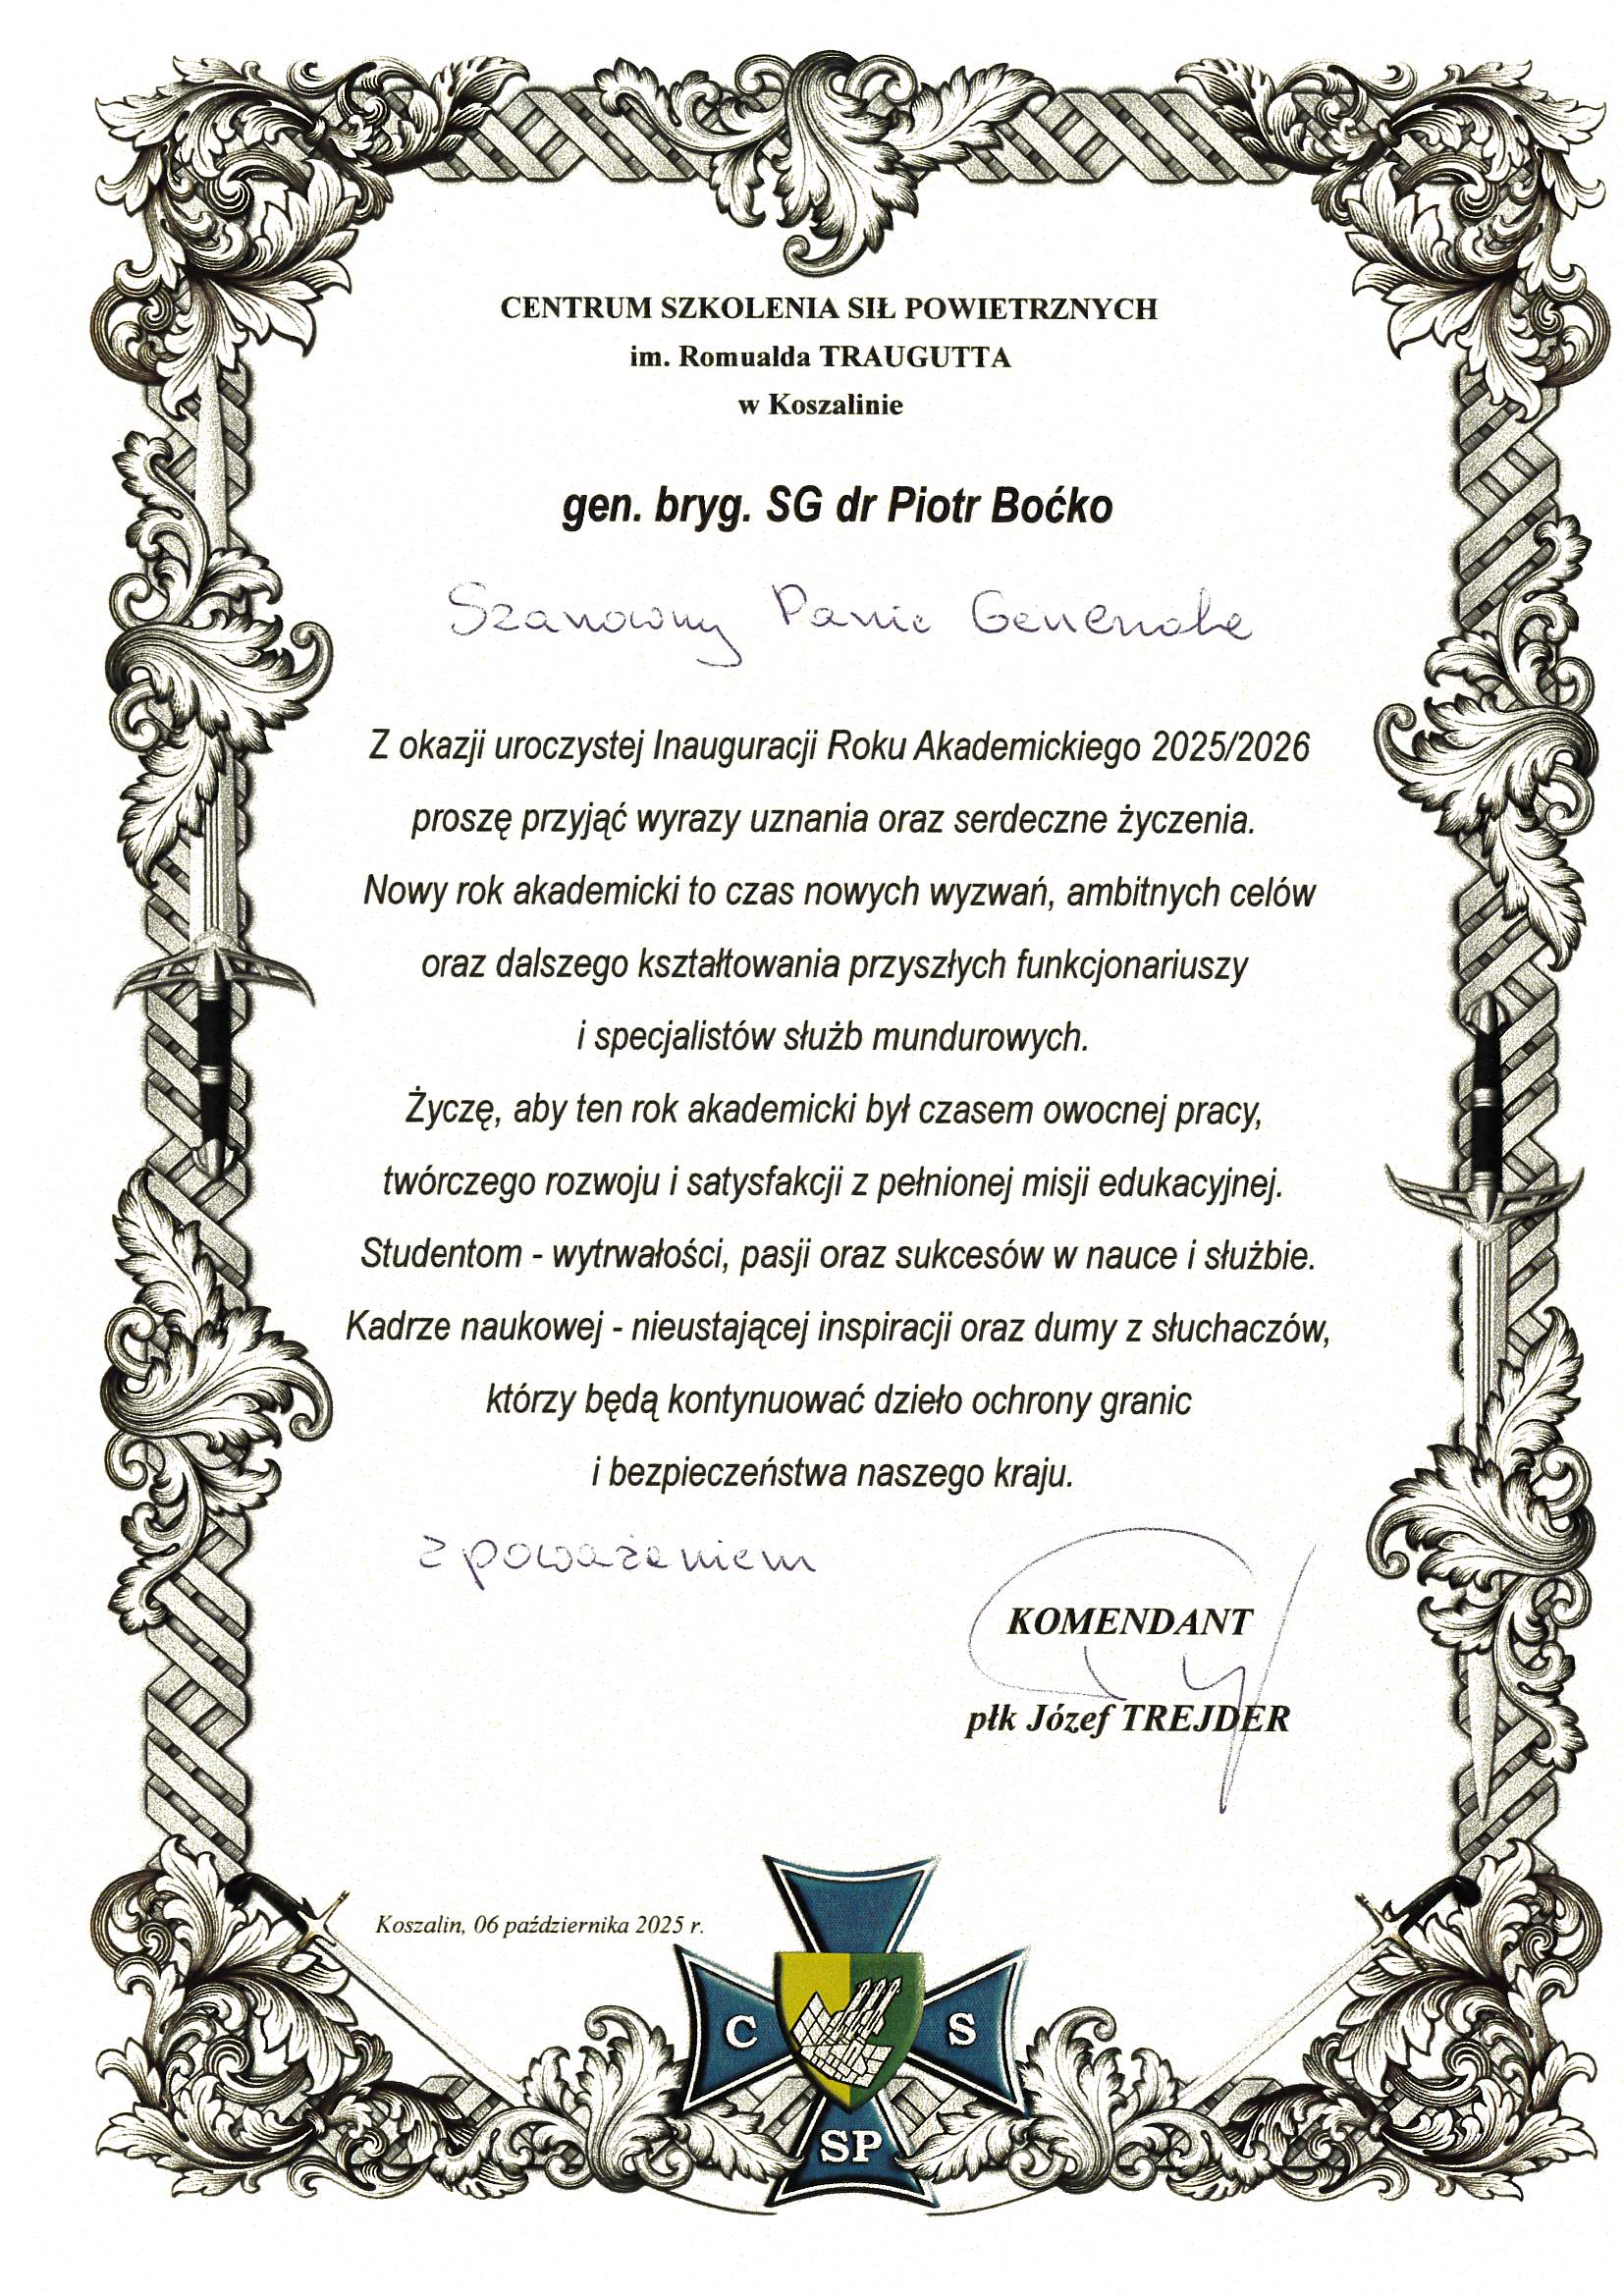 CENTRUM SZKOLENIA SIŁ POWIETRZNYCH
im. Romualda TRAUGUTTA
w Koszalinie
gen. bryg. SG dr Piotr Boćko
Szanowny Panie Generale
Z okazji uroczystej Inauguracji Roku Akademickiego 2025/2026
proszę przyjąć wyrazy uznania oraz serdeczne życzenia.
Nowy rok akademicki to czas nowych wyzwań, ambitnych celów
oraz dalszego kształtowania przyszłych funkcjonariuszy
i specjalistów służb mundurowych.
Życzę, aby ten rok akademicki był czasem owocnej pracy,
twórczego rozwoju i satysfakcji z pełnionej misji edukacyjnej.
Studentom - wytrwałości, pasji oraz sukcesów w nauce i służbie.
Kadrze naukowej - nieustającej inspiracji oraz dumy z słuchaczów,
którzy będą kontynuować dzieło ochrony granic
i bezpieczeństwa naszego kraju.
z poważaniem
KOMENDANT
płk Józef TREJDER
Koszalin, 06 października 2025 r.
C S
SP